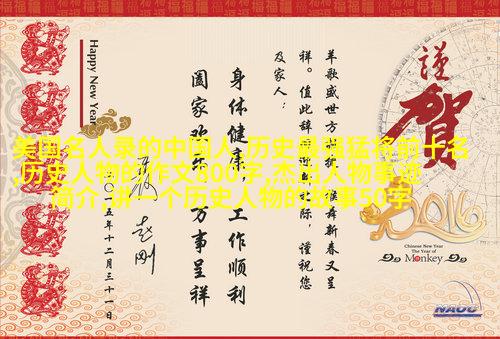 美国名人录的中国人,历史最强猛将前十名
,历史人物的作文600字,杰出人物事迹
简介,讲一个历史人物的故事50字
謹
賀
2016
Chinese New Year
The Year of
Monkey
NAOC
羊歌盛世方辞 猴舞新春又呈
祥。值此辞旧迎新之际，谨祝您
及家人：
身体健康，工作顺利
阖家欢乐，万事呈祥
赵刚
二〇一五年十二月三十一日
Happy New Year